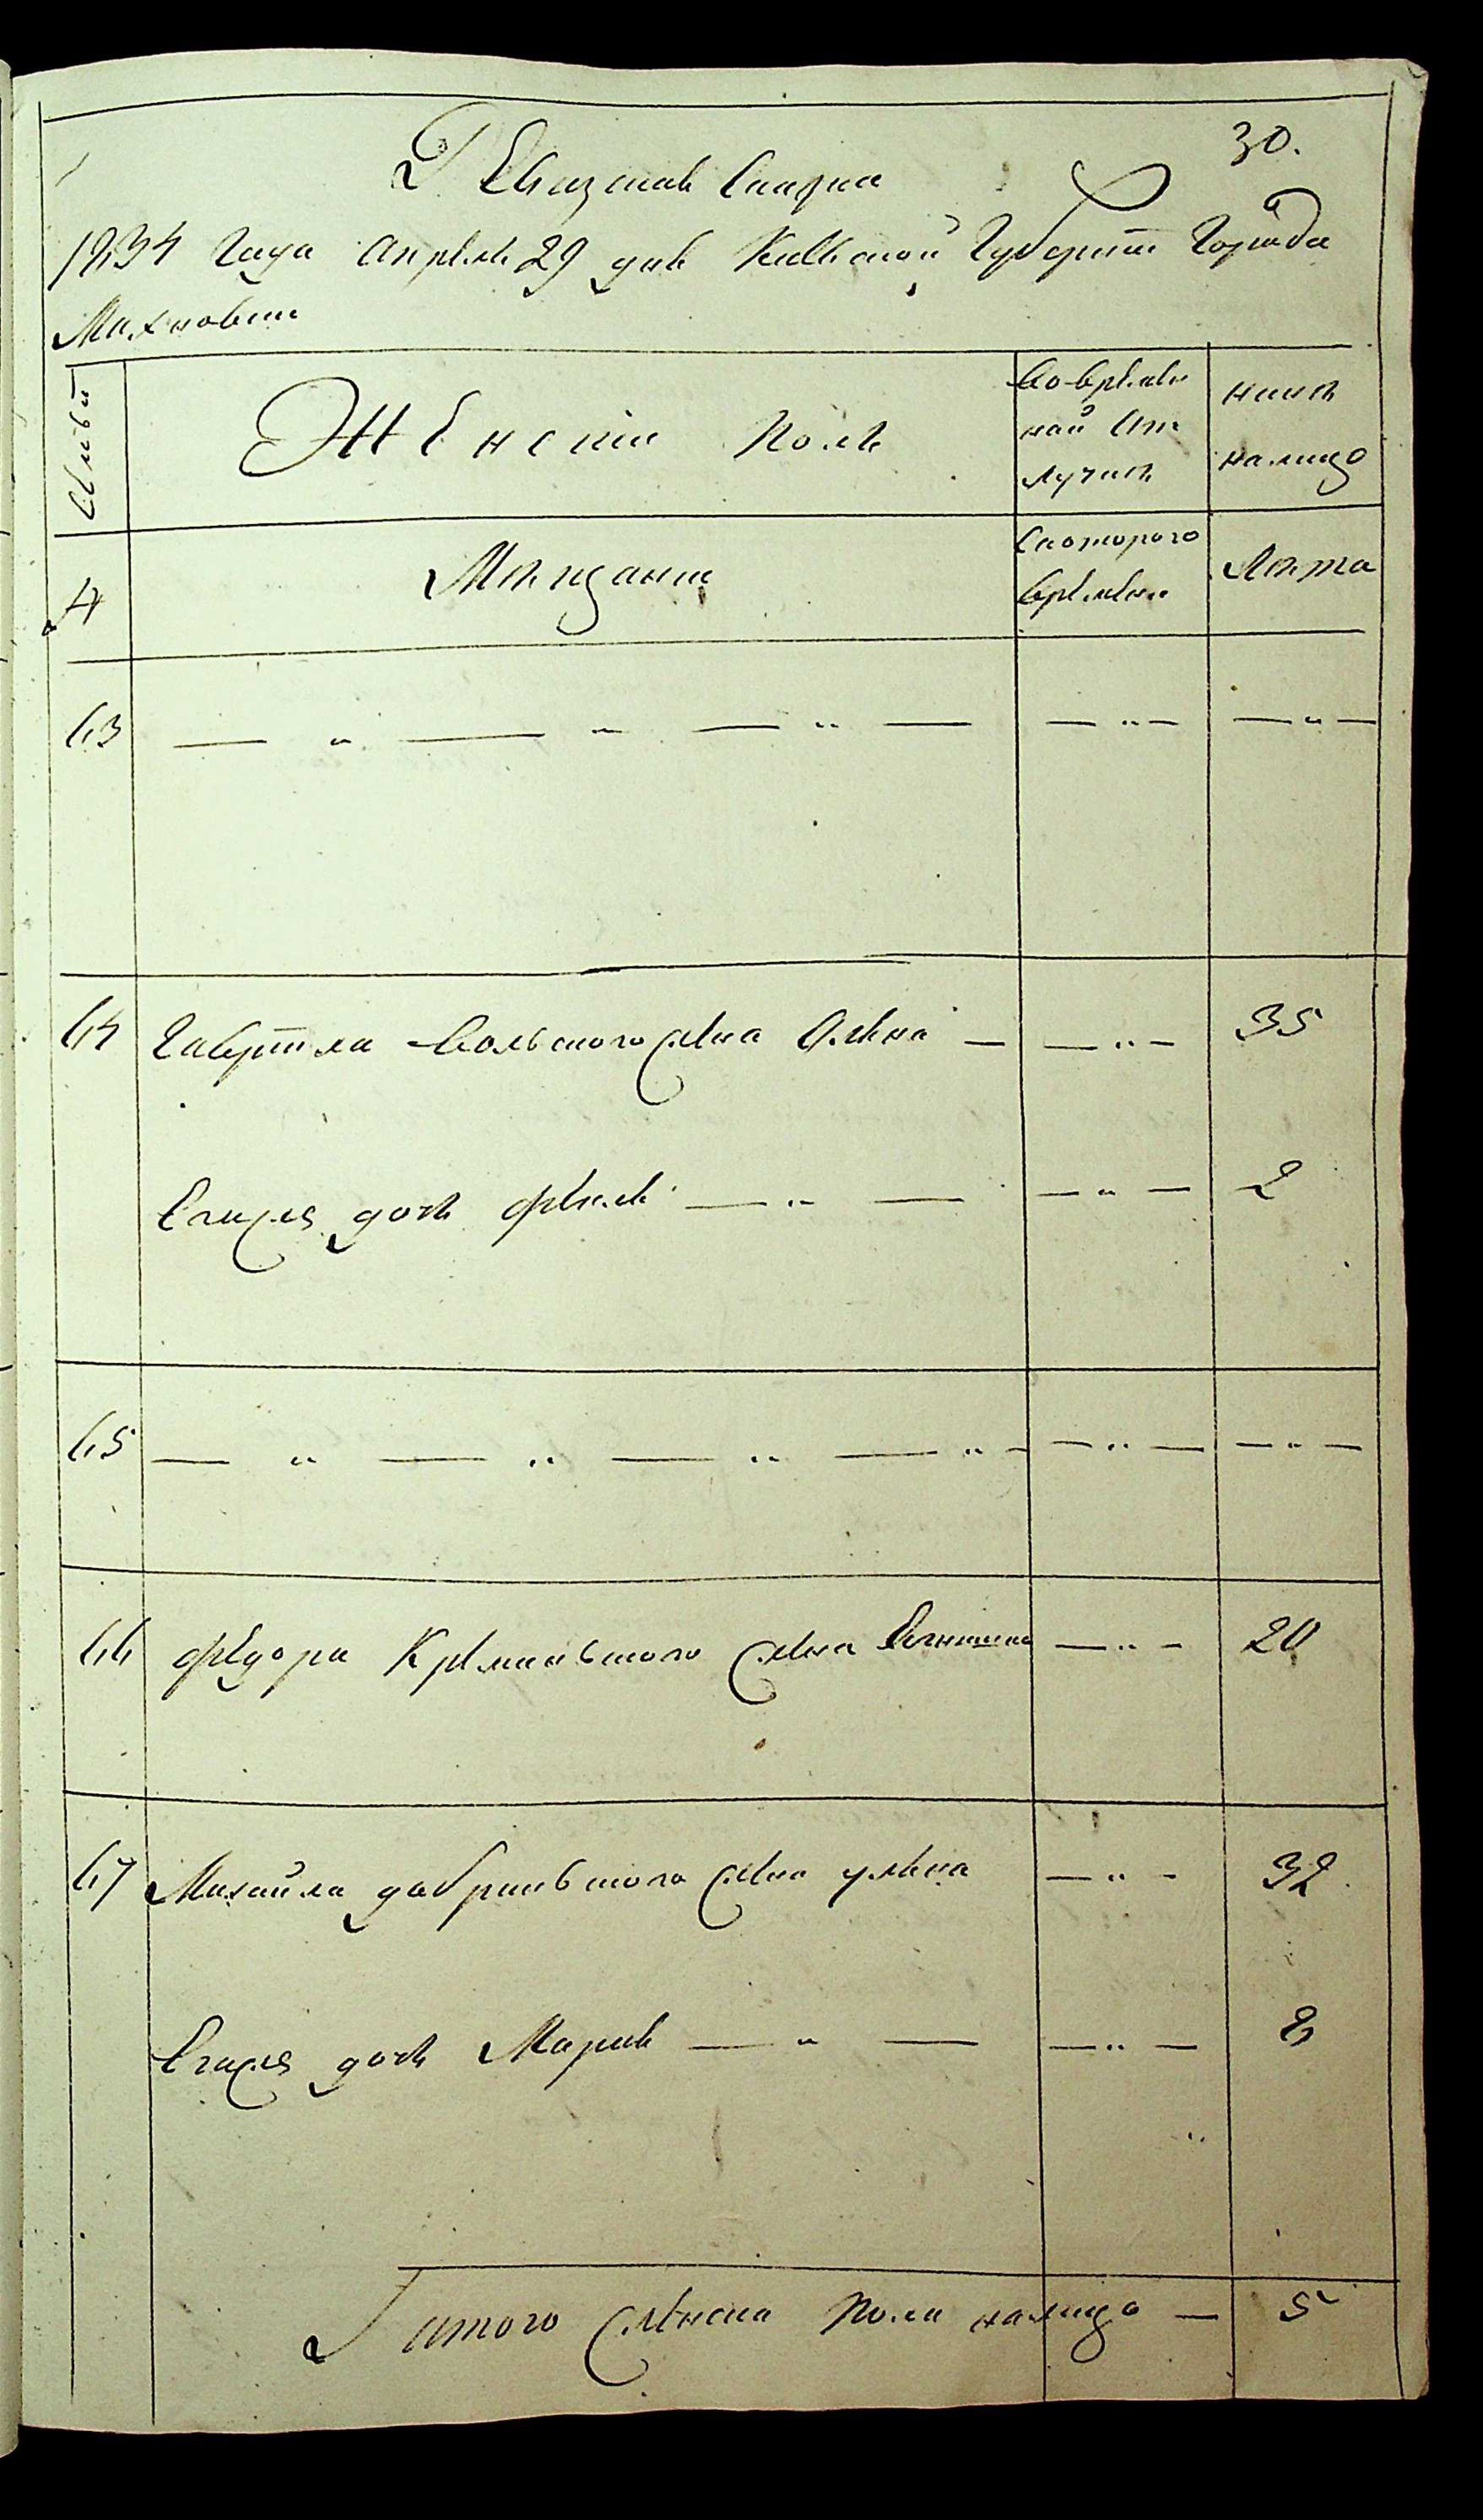 30.
Ревизская Сказка
1834 года апреля 29 дня Киевской Губернии Города
Махновки
Семьи
Женской Поль
Во времен
ной от
лучке
ныне
налицо
№
Мещане
Скоторого
времени
Лета
63 — " — " — " — — " — — " —
64 Гаврiила Вольского жена Олена — — " — 35
Егоже дочь — " — — " — 2
65 — " — " — " — " — — " — — " —
66 Федора Креминского жена — " — 20
67 Михайла добринского жена улiяна — " — 32
Егоже дочь Марiя — " — — " — 8
Итого женска пола налицо — 5